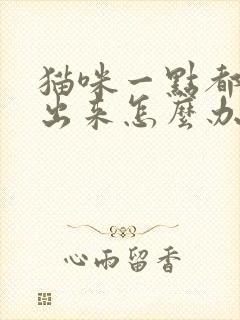 猫咪一點都
出来怎麼办
心雨留香